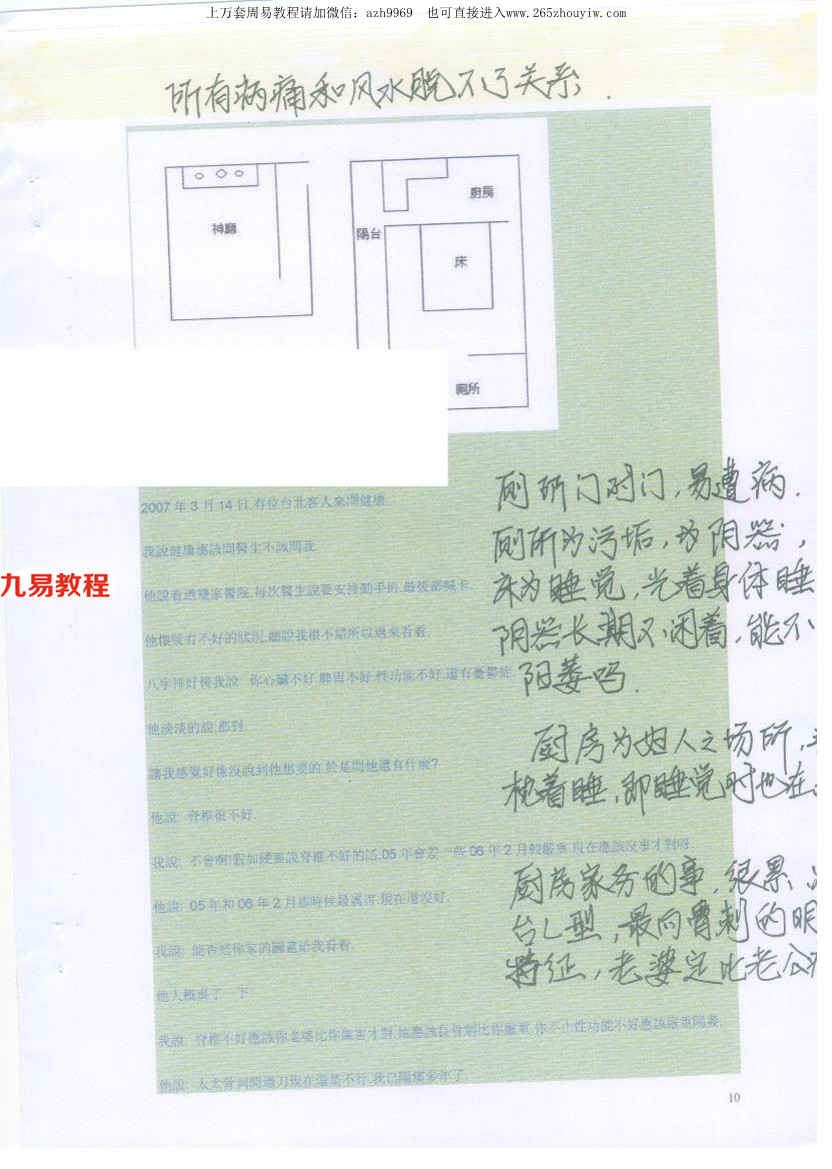 上万套周易教程请加微信：azh9969 也可直接进入www.265zhouyiw.com
所有病痛和风水脱不了关系.
神廳
廚房
陽台
床
廁所
2007年3月14日,有位台北客人來問健康.
厕所门对门，易遭病.
我說健康應該問醫生不該問我.
厕所为污垢，为阴器，
九易教程
他說看過幾家醫院,每次醫生說要安排動手術,最後都喊卡.
床为睡觉，光着身体睡
他懷疑有不好的狀況,聽說我很不錯所以過來看看.
阴器长期又闲着，能不
八字排好後我說: 你心臟不好,脾胃不好,性功能不好,還有憂鬱症.
阳萎吗.
他淡淡的說,都對.
厨房为妇人之场所，
讓我感覺好像沒說到他想要的,於是問他還有什麼?
枕着睡，即睡觉时也在
他說: 脊椎很不好.
我說: 不會啊!假如硬要說脊椎不好的話,05年會差一些06年2月較嚴重,現在應該沒事才對呀.
厨房家务的事，很累
他說: 05年和06年2月那時候最厲害,現在還沒好.
台L型，最向骨刺的明
我說: 能否把你家的圖畫給我看看.
特征，老婆定比老公
他大概畫了一下.
我說: 脊椎不好應該你老婆比你厲害才對,她應該長骨刺比你嚴重,你不止性功能不好應該嚴重陽萎.
他說: 太太骨刺開過刀現在還是不行,我已陽萎多年了.
10